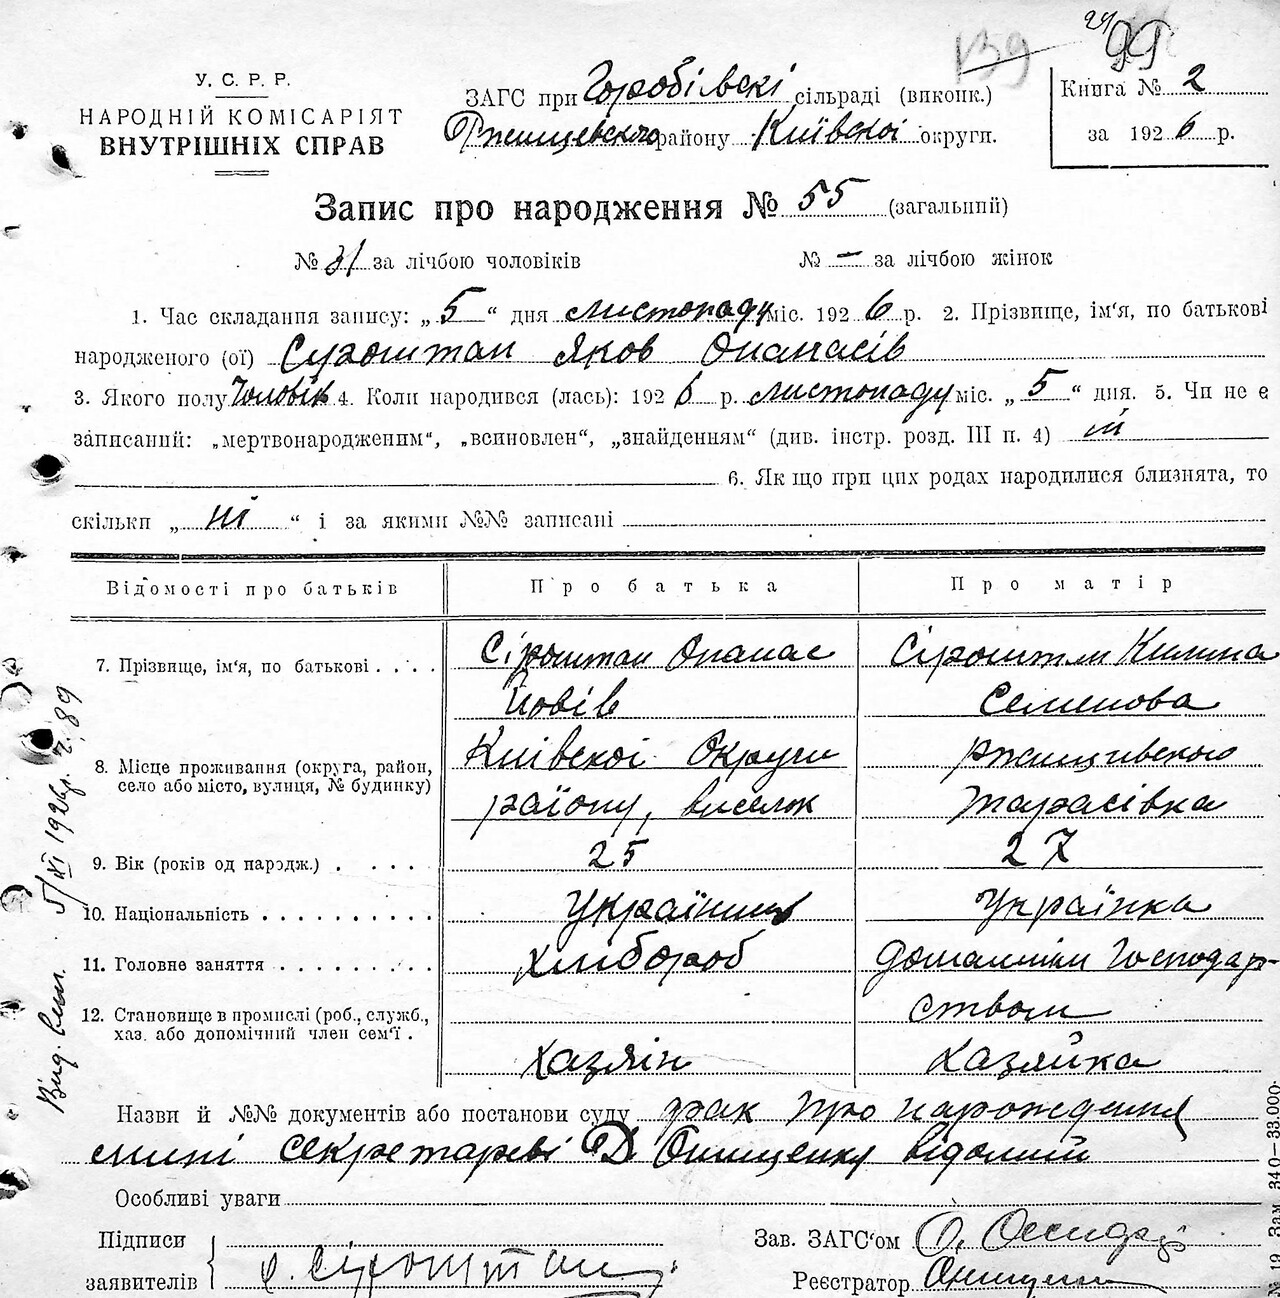 139
24
У. С. Р. Р.
НАРОДНІЙ КОМІСАРІЯТ
ВНУТРІШНІХ СПРАВ
ЗАГС при Горобівскі сільраді (виконк.)
Ржищевского району Київскоі округи.
Книга № 2
за 1926 р.
Запис про народження № 55 (загальний)
№ 31 за лічбою чоловіків № — за лічбою жінок
1. Час складання запису: „5“ дня листопаду міс. 1926 р. 2. Прізвище, ім'я, по батькові
народженого (ої) Сироштан Яков Опанасів
3. Якого полу Чоловік 4. Коли народився (лась): 1926 р. листопаду міс. „5“ дня. 5. Чи не є
записаний: „мертвонародженим“, „всиновлен“, „знайденням“ (див. інстр. розд. III п. 4) ні
6. Як що при цих родах народилися близнята, то
скільки „ні“ і за якими №№ записані
Відомості про батьків Про батька Про матір
7. Прізвище, ім'я, по батькові . . . . Сіроштан Опанас Сіроштан Килина
Йовів Семенова
8. Місце проживання (округа, район, село або місто, вулиця, № будинку) Київскоі Округи ржищивского
району, виселок тарасівка
9. Вік (років од народж.) . . . . 25 27
10. Національність . . . . . . . . . Українець Українка
11. Головне заняття . . . . . . . . хлібороб домашнім господар-
ством
12. Становище в промислі (роб., служб., хаз. або допомічний член сем'ї . Хазяін Хазяйка
Назви й №№ документів або постанови суду про народження
мині секретареві Д Онищенку відомий
Особливі уваги
Підписи
заявителів О. Сіроштан
Зав. ЗАГС'ом
Реєстратор Онищенко
Вид. вип. 5/XI 1926 р. ч. 89
№ 19 Зам 340—33.000